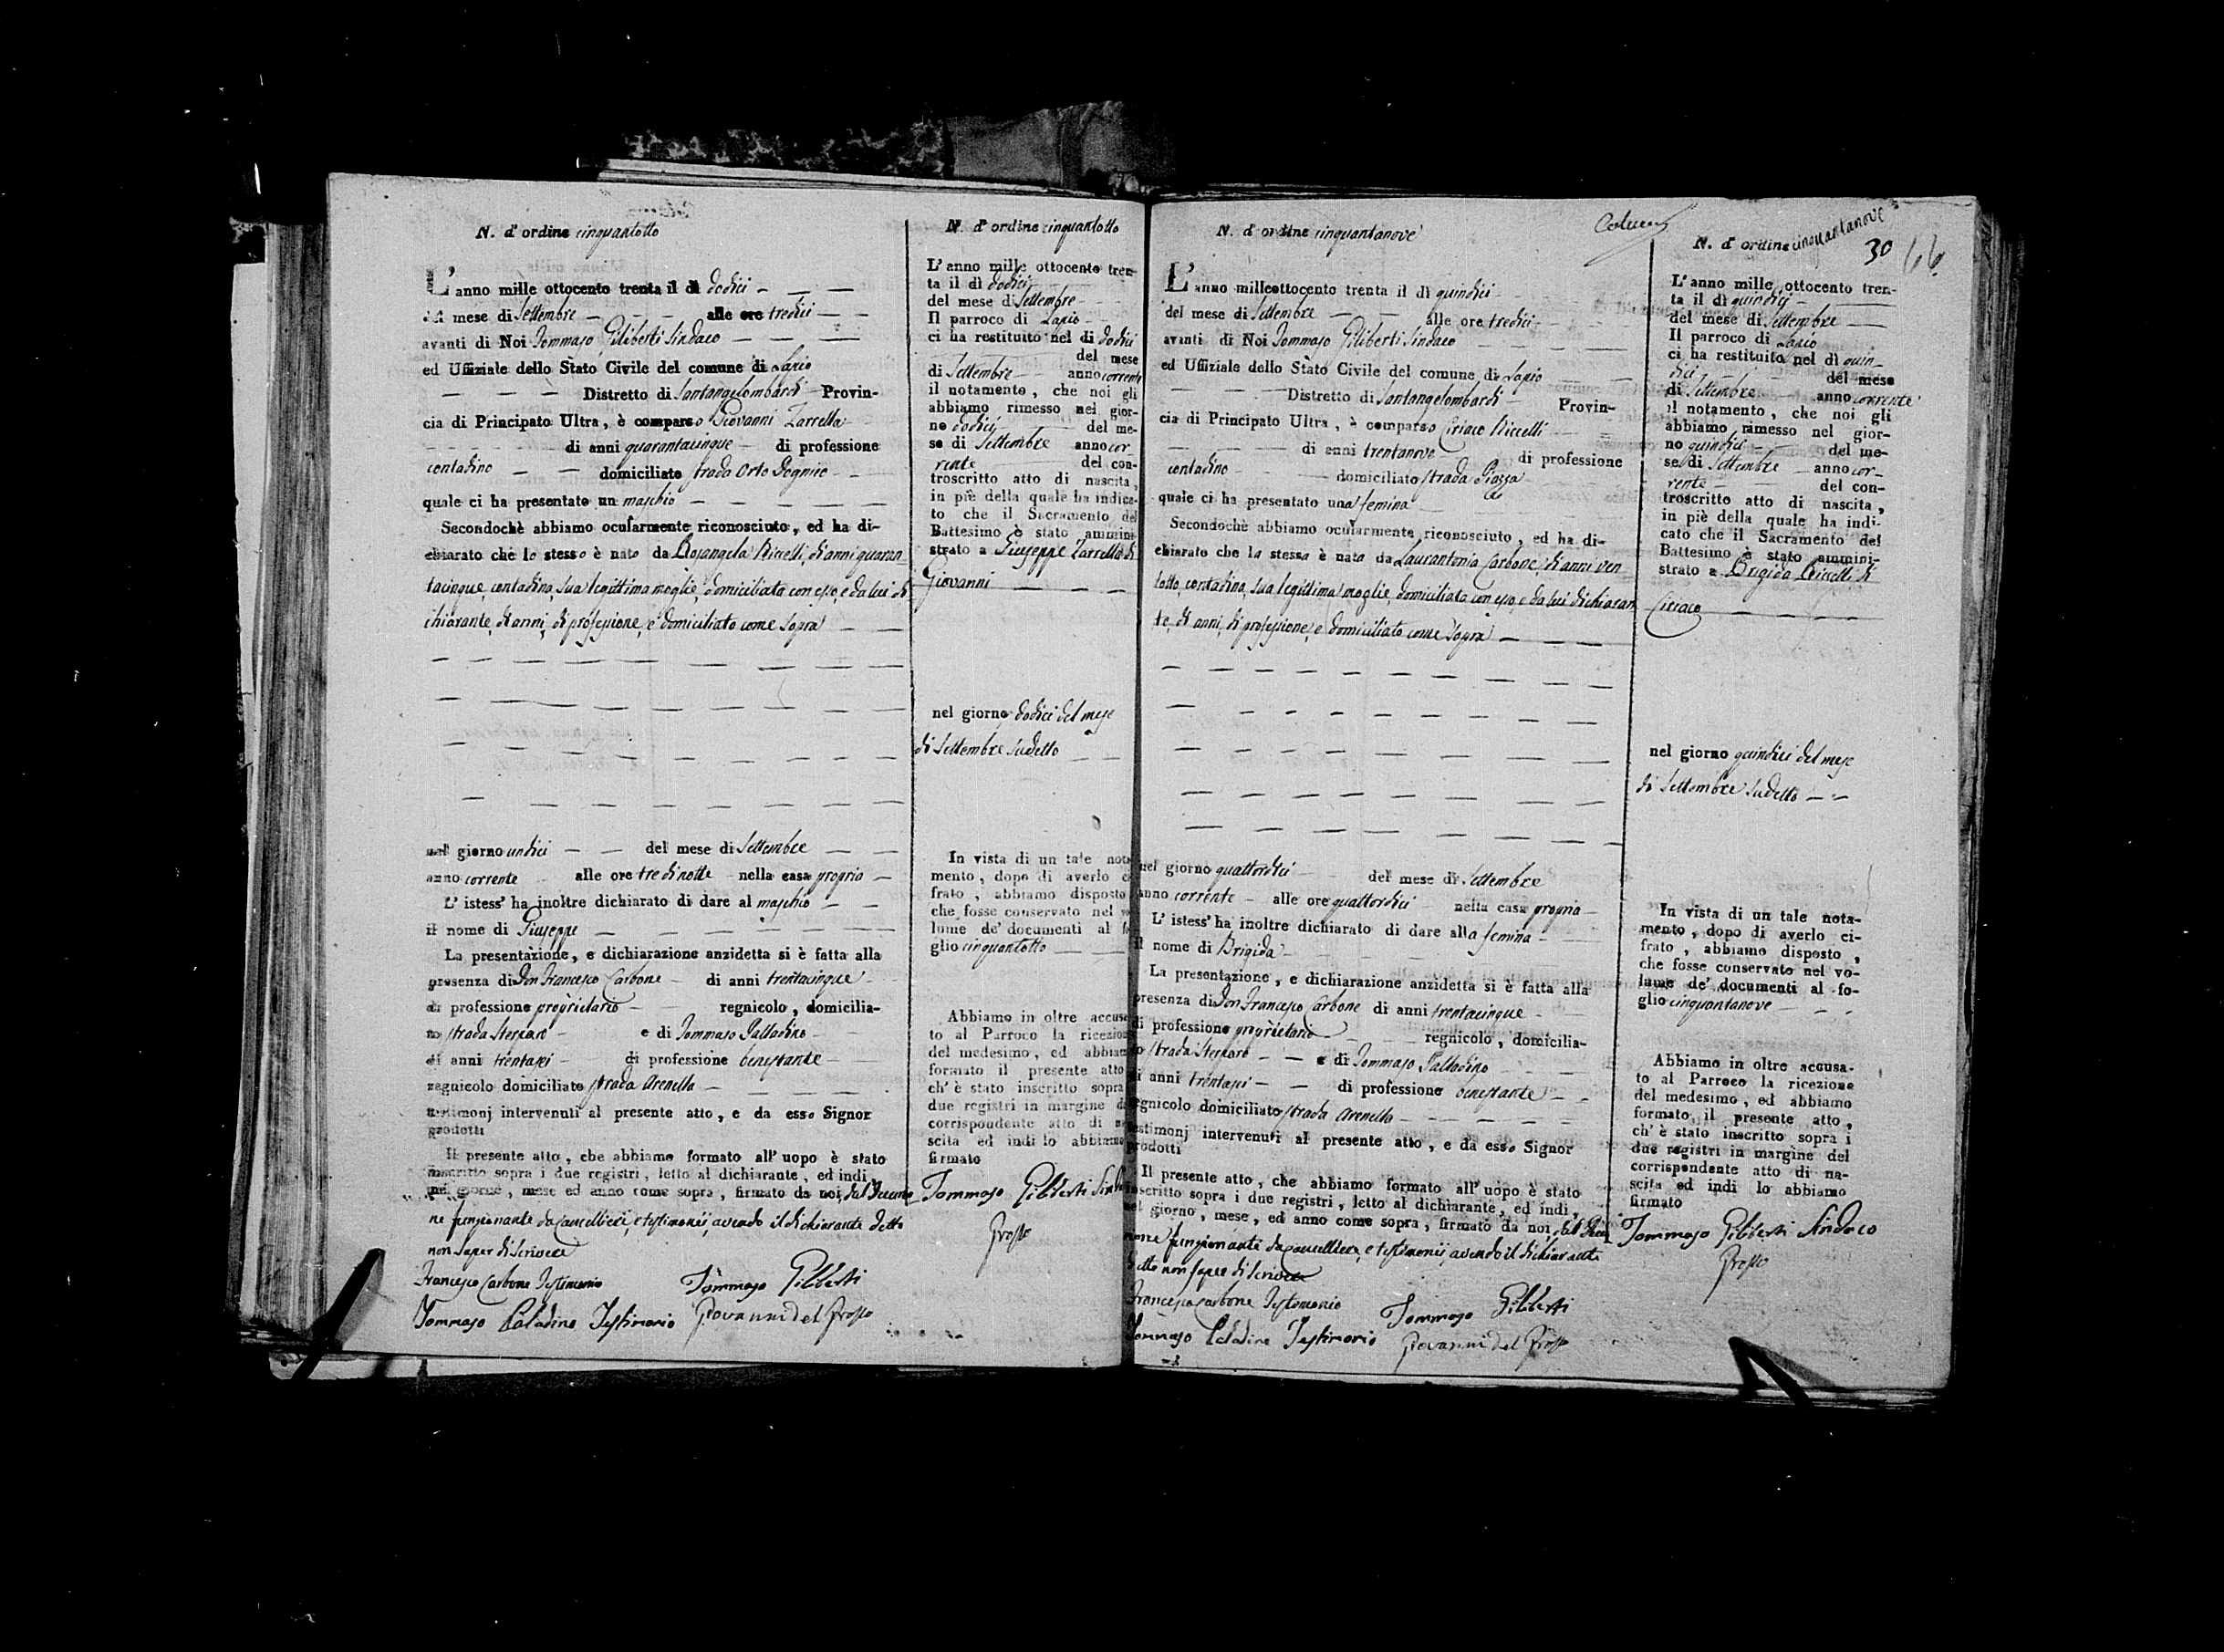 N. d'ordine cinquantotto
L'anno mille ottocento trenta il dì dodici
mese di Settembre alle ore tredici
avanti di Noi Tommaso Giliberti Sindaco
ed Uffiziale dello Stato Civile del comune di Lapio
Distretto di Santangelombardi Provin-
cia di Principato Ultra, è comparso Giovanni Zarrella
di anni quarantacinque di professione
contadino domiciliato strada Orto
quale ci ha presentato un maschio
Secondochè abbiamo ocularmente riconosciuto, ed ha di-
chiarato che lo stesso è nato da Rosangela Riccelli, di anni quaran-
tacinque, contadina, sua legittima moglie, domiciliata con esso, e da lui di
chiarante, di anni, di professione, e domiciliato come sopra
nel giorno undici del mese di Settembre
anno corrente alle ore tre di notte nella casa propria
L'istess' ha inoltre dichiarato di dare al maschio
il nome di Giuseppe
La presentazione, e dichiarazione anzidetta si è fatta alla
presenza di Don Francesco Carbone di anni trentacinque
di professione proprietario regnicolo, domicilia-
to strada Sterparo e di Tommaso Palladino
di anni trentasei di professione benestante
regnicolo domiciliato strada Arenella
testimonj intervenuti al presente atto, e da esso Signor
prodotti
Il presente atto, che abbiamo formato all'uopo è stato
inscritto sopra i due registri, letto al dichiarante, ed indi
nel giorno, mese ed anno come sopra, firmato da noi, dal Decurio
ne funzionante da Cancelliere, e testimonii, avendo il dichiarante detto
non saper di scrivere
Francesco Carbone Testimonio Tommaso Giliberti
Tommaso Paladino Testimonio Giovanni Del Grosso
N. d'ordine cinquantotto
L'anno mille ottocento tren-
ta il dì dodici
del mese di Settembre
Il parroco di Lapio
ci ha restituito nel dì dodici
del mese
di Settembre anno corrente
il notamento, che noi gli
abbiamo rimesso nel gior-
no dodici del me-
se di Settembre anno cor
rente del con-
troscritto atto di nascita,
in piè della quale ha indica-
to che il Sacramento del
Battesimo è stato ammini-
strato a Giuseppe Zarrella di
Giovanni
nel giorno dodici del mese
di Settembre sudetto
In vista di un tale nota
mento, dopo di averlo ci
frato, abbiamo disposto
che fosse conservato nel vo
lume de' documenti al fo
glio cinquantotto
Abbiamo in oltre accusa
to al Parroco la ricezione
del medesimo, ed abbiamo
formato il presente atto
ch'è stato inscritto sopra
due registri in margine del
corrispondente atto di na
scita ed indi lo abbiamo
firmato
Tommaso Giliberti Sindaco
Grosso
N. d'ordine cinquantanove
L'anno milleottocento trenta il dì quindici
del mese di Settembre alle ore tredici
avanti di Noi Tommaso Giliberti Sindaco
ed Uffiziale dello Stato Civile del comune di Lapio
Distretto di Santangelombardi Provin-
cia di Principato Ultra, è comparso Ciriaco Riccelli
di anni trentanove di professione
contadino domiciliato strada Piazza
quale ci ha presentato una femina
Secondochè abbiamo ocularmente riconosciuto, ed ha di-
chiarato che la stessa è nata da Laurantonia Carbone, di anni ven
totto, contadina, sua legittima moglie, domiciliata con esso, e da lui dichiaran
te, di anni, di professione, e domiciliato come sopra
nel giorno quattordici del mese di Settembre
anno corrente alle ore quattordici nella casa propria
L'istess' ha inoltre dichiarato di dare alla femina
il nome di Brigida
La presentazione, e dichiarazione anzidetta si è fatta alla
presenza di Don Francesco Carbone di anni trentacinque
di professione proprietario regnicolo, domicilia-
to strada Sterparo e di Tommaso Palladino
di anni trentasei di professione benestante
regnicolo domiciliato strada Arenella
testimonj intervenuti al presente atto, e da esso Signor
prodotti
Il presente atto, che abbiamo formato all'uopo è stato
inscritto sopra i due registri, letto al dichiarante, ed indi,
nel giorno, mese, ed anno come sopra, firmato da noi, dal Decu
rione funzionante da Cancelliere, e testimonii, avendo il dichiarante
detto non saper di scrivere
Francesco Carbone Testimonio Tommaso Giliberti
Tommaso Paladino Testimonio Giovanni Del Grosso
N. d'ordine cinquantanove
30 66
L'anno mille ottocento tren-
ta il dì quindici
del mese di Settembre
Il parroco di Lapio
ci ha restituito nel dì quin-
dici del mese
di Settembre anno corrente
il notamento, che noi gli
abbiamo rimesso nel gior-
no quindici del me-
se di Settembre anno cor-
rente del con-
troscritto atto di nascita,
in piè della quale ha indi-
cato che il Sacramento del
Battesimo è stato ammini-
strato a Brigida Riccelli di
Ciriaco
nel giorno quindici del mese
di Settembre sudetto
In vista di un tale nota-
mento, dopo di averlo ci-
frato, abbiamo disposto,
che fosse conservato nel vo-
lume de' documenti al fo-
glio cinquantanove
Abbiamo in oltre accusa-
to al Parroco la ricezione
del medesimo, ed abbiamo
formato il presente atto,
ch'è stato inscritto sopra i
due registri in margine del
corrispondente atto di na-
scita ed indi lo abbiamo
firmato
Tommaso Giliberti Sindaco
Grosso